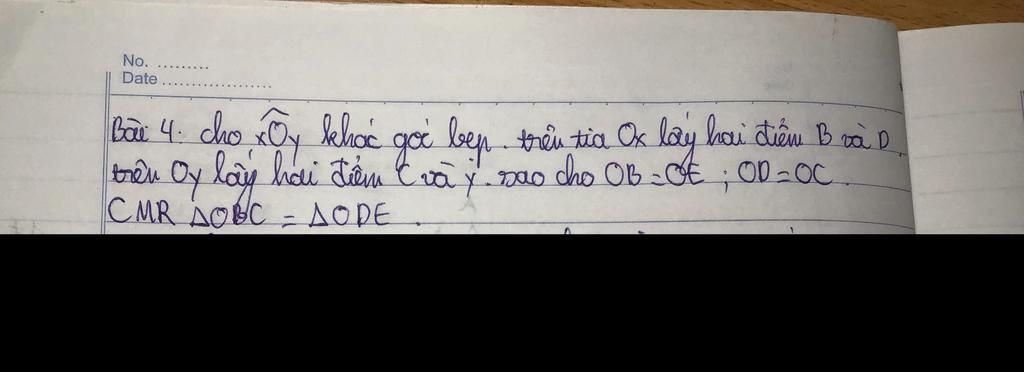 No. .........
Date ...................
Bài 4. cho xÔy khác góc bẹp. trên tia Ox lấy hai điểm B và D.
trên Oy lấy hai điểm C và y. sao cho OB = OE ; OD = OC.
CMR ΔOBC = ΔODE.